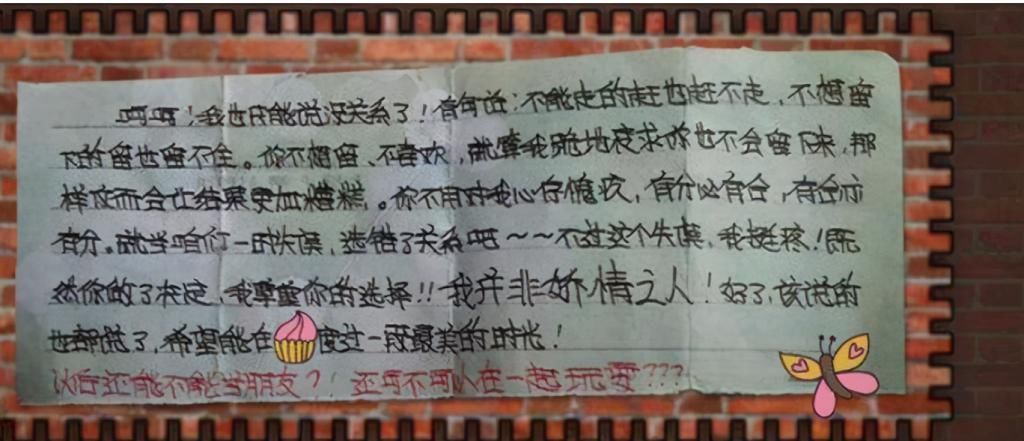 呵呵！我也只能说没关系了！有句话：不能走的赶也赶不走，不想留
下的留也留不全。你不想留、不喜欢，就算我跪地哀求你也不会留下来，那
样反而会让结果更加糟糕。你不用对我心存愧疚，有分必有合，有合亦
有分。就当咱们一时失误，选错了关系吧～～不过这个失误，我挺疼！既
然你做了决定，我尊重你的选择!!我并非娇情之人！好了，该说的
也都说了，希望能在 度过一段最美的时光！
以后还能不能当朋友？！还可不可以在一起玩耍???